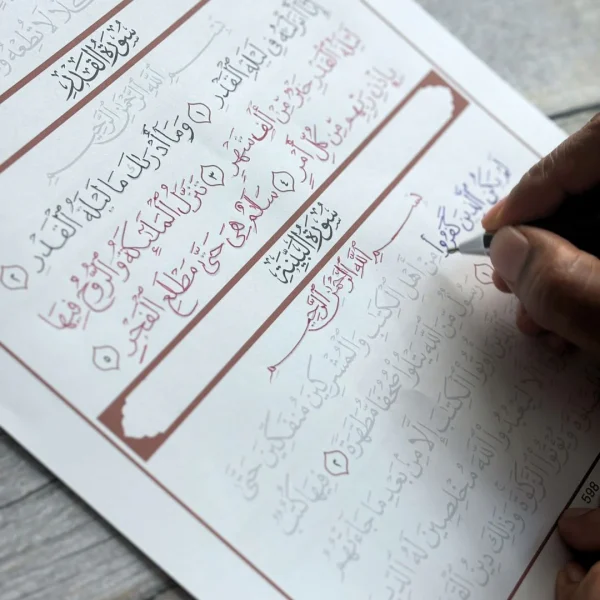 لَا تُطِعْهُ
سُورَةُ القَدْرِ
بِسْمِ ٱللَّهِ ٱلرَّحْمَٰنِ ٱلرَّحِيمِ
إِنَّآ أَنزَلْنَٰهُ فِى لَيْلَةِ ٱلْقَدْرِ ١ وَمَآ أَدْرَىٰكَ مَا لَيْلَةُ ٱلْقَدْرِ ٢
لَيْلَةُ ٱلْقَدْرِ خَيْرٌ مِّنْ أَلْفِ شَهْرٍ ٣ تَنَزَّلُ ٱلْمَلَٰٓئِكَةُ وَٱلرُّوحُ فِيهَا
بِإِذْنِ رَبِّهِم مِّن كُلِّ أَمْرٍ ٤ سَلَٰمٌ هِىَ حَتَّىٰ مَطْلَعِ ٱلْفَجْرِ ٥
سُورَةُ البَيِّنَةِ
بِسْمِ ٱللَّهِ ٱلرَّحْمَٰنِ ٱلرَّحِيمِ
لَمْ يَكُنِ ٱلَّذِينَ كَفَرُوا۟ مِنْ أَهْلِ ٱلْكِتَٰبِ وَٱلْمُشْرِكِينَ مُنفَكِّينَ حَتَّىٰ
رَسُولٌ مِّنَ ٱللَّهِ يَتْلُوا۟ صُحُفًا مُّطَهَّرَةً ٢ فِيهَا كُتُبٌ
أُوتُوا۟ ٱلْكِتَٰبَ إِلَّا مِنۢ بَعْدِ مَا جَآءَتْهُمُ
إِلَّا لِيَعْبُدُوا۟ ٱللَّهَ مُخْلِصِينَ لَهُ ٱلدِّينَ
وَيُؤْتُوا۟ ٱلزَّكَوٰةَ وَذَٰلِكَ دِينُ
598